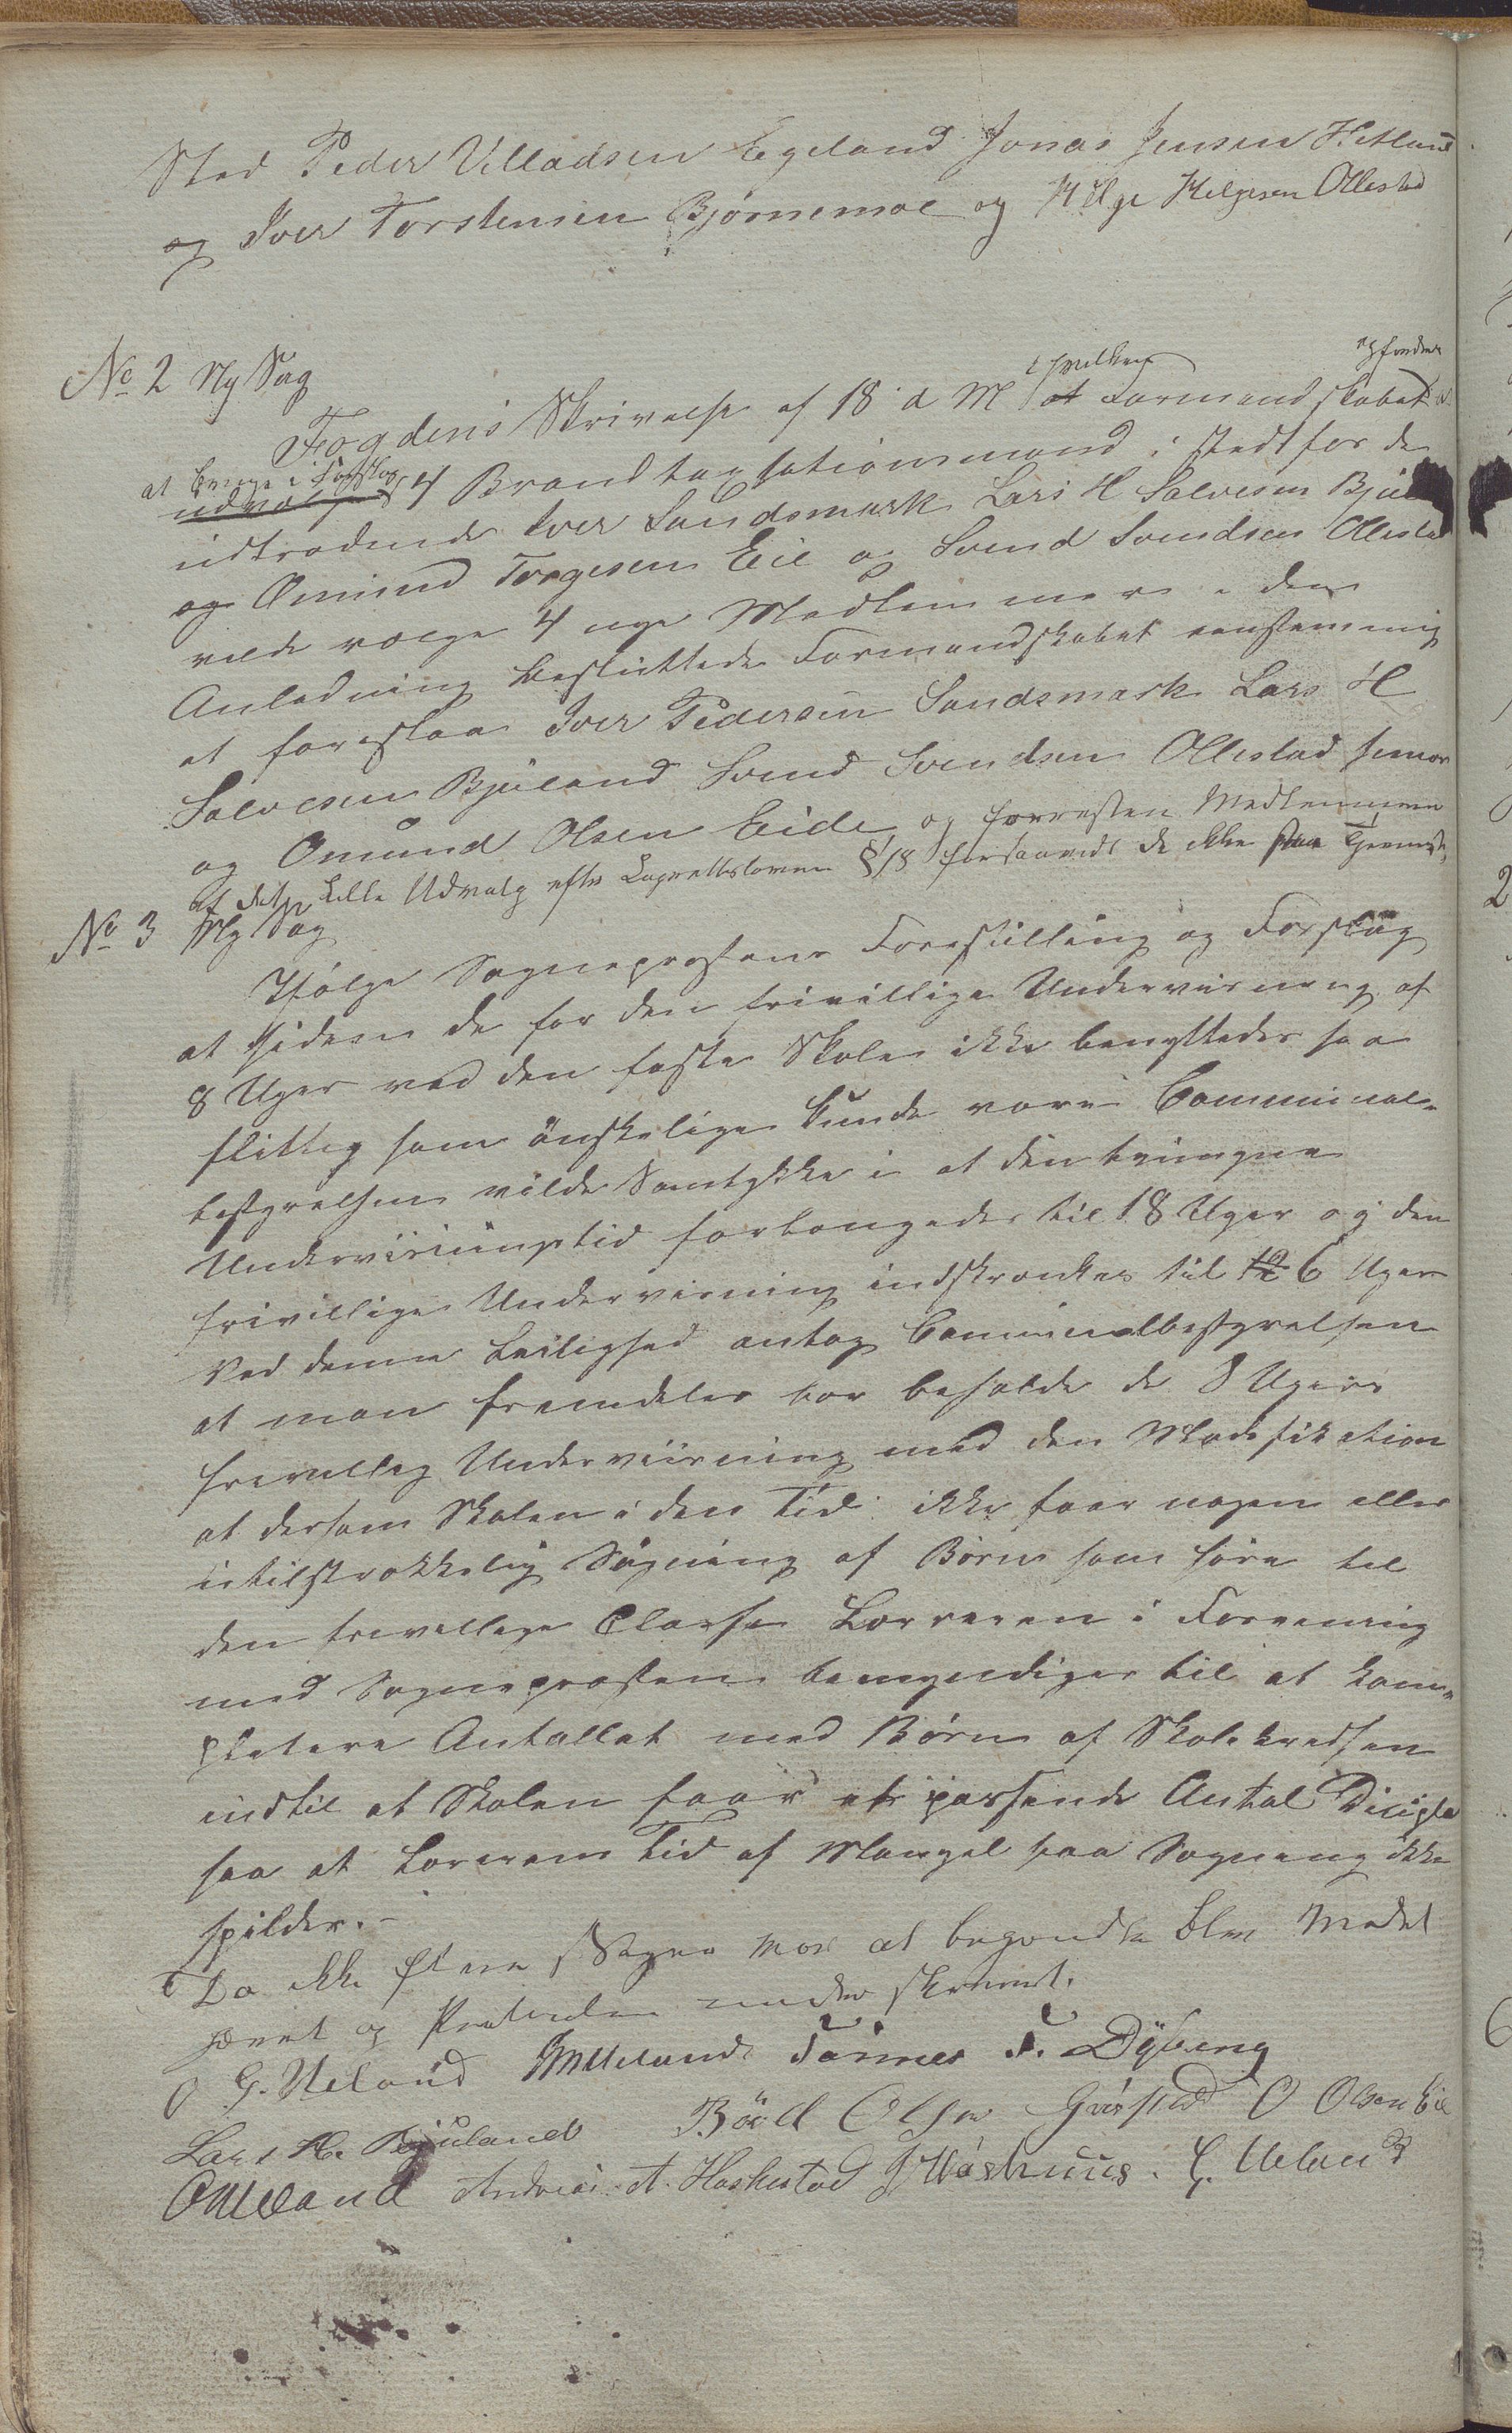 Sted Peder Villadsen Egeland Jonas Jensen Hetland
og Iver Torstensen Bjørnemoe og Helge Helgesen Ollestad
No 2 Ny Sag
i hvilken opfordres
Fogdens Skrivelse af 18 d M at Formandskabet
at bringe i Forslag
udvælge 4 Brandtaxationsmænd i stedet for de
udtrædende Iver Sandsmark Lars H Salvesen Bjuland
og Omund Torgesen Eie og Svend Svendsen Ollestad
vilde vælge 4 nye Medlemmer i den
Anledning besluttede Formandskabet eenstemmig
at foreslaa Iver Pedersen Sandsmark Lars H
Salvesen Bjuland Svend Svendsen Ollestad junior
og Omund Olsen Eide og forresten Medlemmerne
af det Lille Udvalg efter Lagrettsloven § 18 forsaavidt de ikke
No 3 Ny Sag
Ifølge Sognepræstens Forestilling og Forslag
at siden de for den frivillige Underviisning af
8 Uger ved den faste Skole ikke benyttedes saa
flittig som ønskelige kunde være Communal-
bestyrelsen vilde Samtykke i at den tvungne
Underviisningstid forlængedes til 18 Uger og den
frivillige Underviisning indskrænkes til 12 6 Uger
Ved denne Leilighed antog Communalbestyrelsen
at man fremdeles bør beholde de 8 Ugers
frivillig Underviisning med den Modifikation
at dersom Skolen i den Tid ikke faar nogen eller
utilstrækkelig Søgning af Børn som høre til
den frivillige Classe Læreren i Forening
med Sognepræsten bemyndiges til at kom-
pletere Antallet med Børn af Skolekredsen
indtil at Skolen faar et passende Antal Diciple
saa at Lærerens Tid af Mangel paa Søgning ikke
spildes.-
Da ikke flere Sager var at behandle blev Mødet
hævet og Protocollen underskrevet.
O G. Ueland Tønnes T. Dybing
Lars H. Bjuland Bård Olsen Grøsted O Olsen Eie
O Ueland Andreas A. Haskestad G. Ueland